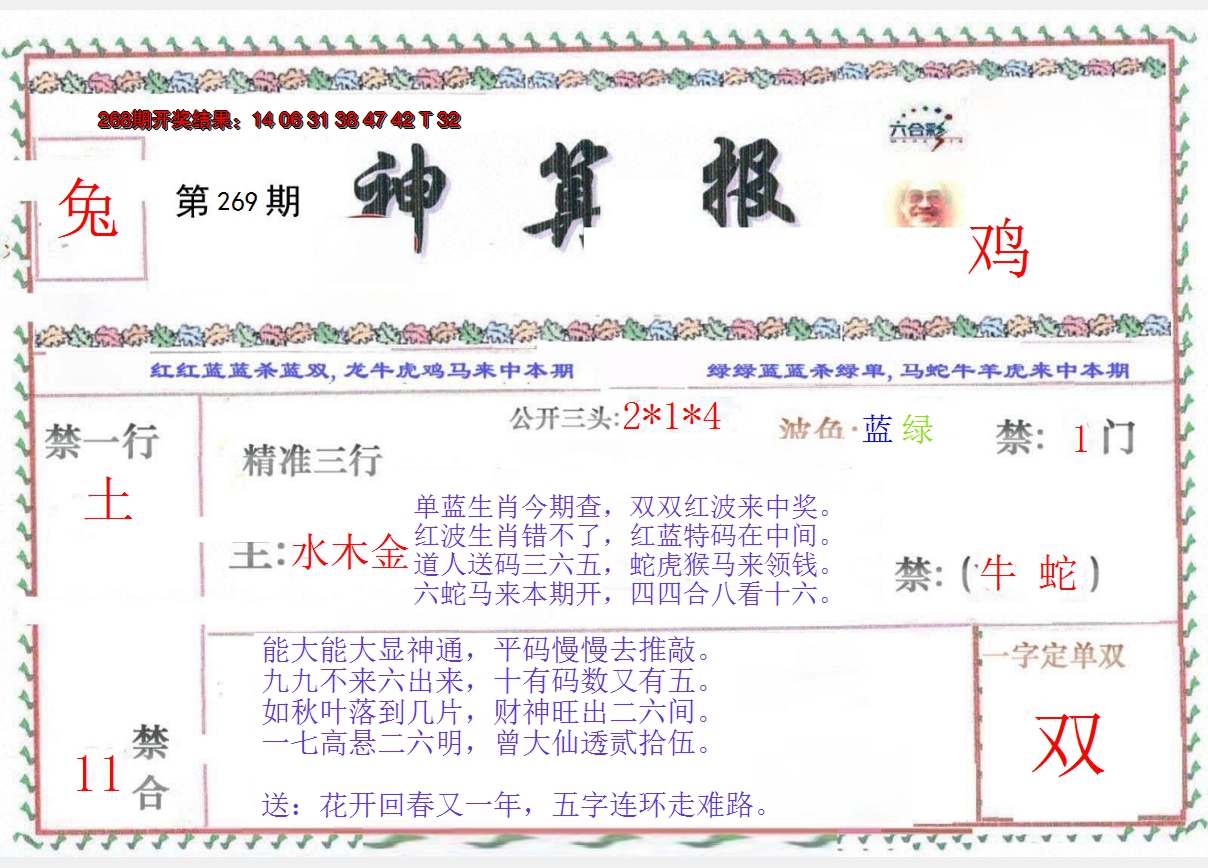 268期开奖结果：14 06 31 38 47 42 T 32
六合彩
兔
第 269 期
神算报
鸡
红红蓝蓝杀蓝双，龙牛虎鸡马来中本期
绿绿蓝蓝杀绿单，马蛇牛羊虎来中本期
禁一行
土
精准三行
主：水木金
公开三头:2*1*4
波色：蓝 绿
禁：1门
单蓝生肖今期查，双双红波来中奖。
红波生肖错不了，红蓝特码在中间。
道人送码三六五，蛇虎猴马来领钱。
六蛇马来本期开，四四合八看十六。
禁：(牛 蛇)
能大能大显神通，平码慢慢去推敲。
九九不来六出来，十有码数又有五。
如秋叶落到几片，财神旺出二六间。
一七高悬二六明，曾大仙透贰拾伍。
送：花开回春又一年，五字连环走难路。
11
禁合
一字定单双
双